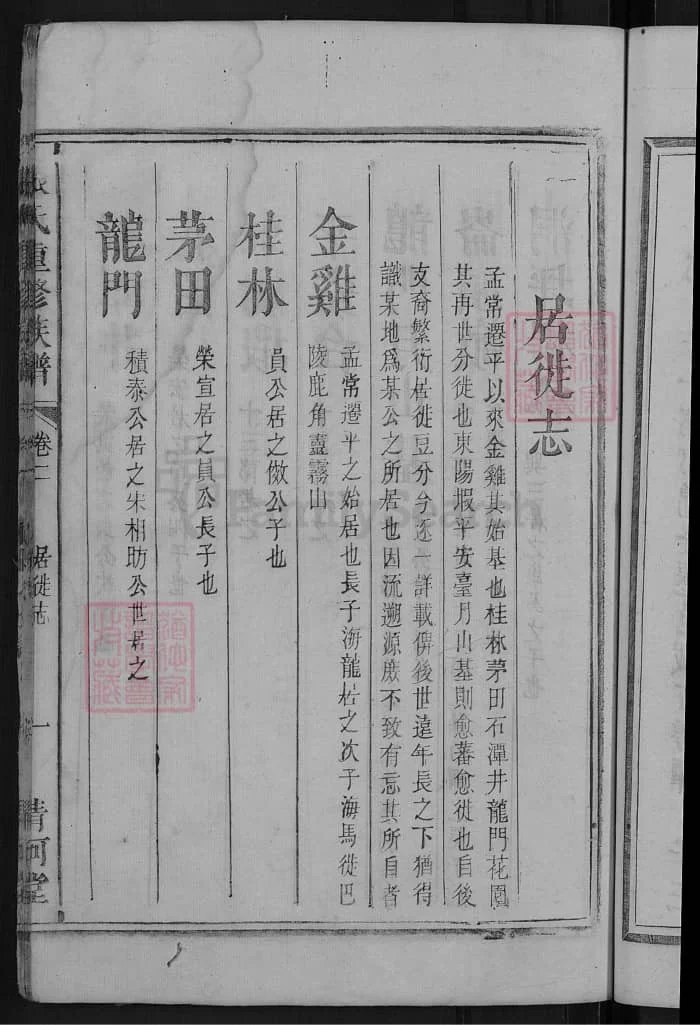 居徙志
孟常遷平以來金雞其始基也桂林茅田石潭井龍門花園
其再世分徙也東陽坂平安臺月山基則愈蕃愈徙也自後
支裔繁衍居徙豆分兮逐一詳載俾後世遠年長之下猶得
識某地爲某公之所居也因流遡源庶不致有忘其所自者
金雞
孟常遷平之始居也長子海龍居之次子海馬徙巴
陵鹿角盡霧山
桂林
員公居之儆公子也
茅田
榮宣居之員公長子也
龍門
積泰公居之朱相助公世居之
氏重修族譜
卷二
居徙志
一
清河堂